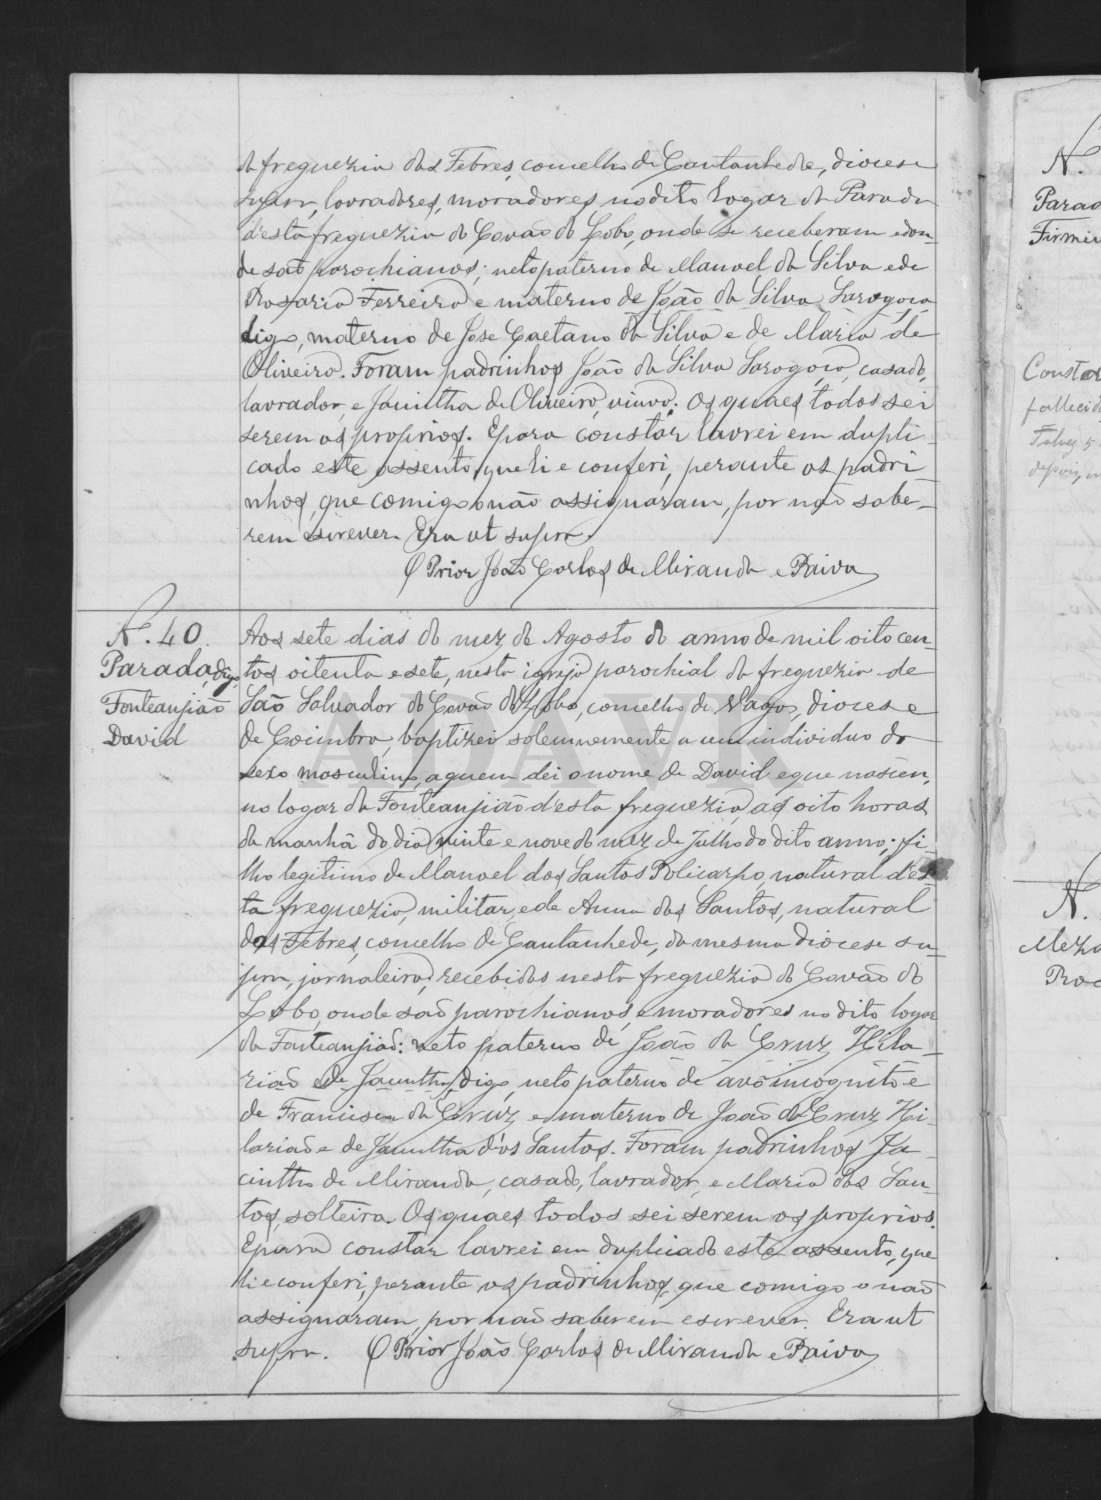 da freguezia das Febres, concelho de Cantanhede, diocese
supra, lavradores, moradores no dito logar da Parada
d'esta freguezia do Covão do Lobo, onde se receberam e don-
de são parochianos; neto paterno de Manoel da Silva e de
Rosaria Ferreira e materno de João da Silva Sarogoça
digo, materno de José Caetano da Silva e de Maria de
Oliveira. Foram padrinhos João da Silva Sarogoça, casado,
lavrador, e Jacintha de Oliveira, viuva; os quaes todos sei
serem os proprios. E para constar lavrei em dupli-
cado este assento, que li e conferi, perante os padri-
nhos, que comigo o não assignaram, por não sabe-
rem escrever. Era ut supra.
O Prior João Carlos de Miranda e Paiva
N. 40.
Parada, digo,
Fonteanjião
David
Aos sete dias do mez de Agosto do anno de mil oito cen-
tos oitenta e sete, nesta igreja parochial da freguezia de
São Salvador do Covão do Lobo, concelho de Vagos, diocese
de Coimbra, baptizei solemnemente a um individuo do
sexo masculino, a quem dei o nome de David, e que nasceu,
no logar da Fonteanjião d'esta freguezia, as oito horas
da manhã do dia vinte e nove do mez de Julho do dito anno; fi-
lho legitimo de Manoel dos Santos Policarpo, natural d'es-
ta freguezia, militar, e de Anna dos Santos, natural
das Febres, concelho de Cantanhede, da mesma diocese su-
pra, jornaleira, recebidos nesta freguezia do Covão do
Lobo, onde são parochianos, e moradores no dito logar
da Fonteanjião: neto paterno de João da Cruz Hila-
rião e de Jacintha, digo, neto paterno de avô incognito e
de Francisca da Cruz, e materno de João da Cruz Hi-
larião e de Jacintha dos Santos. Foram padrinhos Ja-
cintho de Miranda, casado, lavrador, e Maria dos San-
tos, solteira. Os quaes todos sei serem os proprios.
E para constar lavrei em duplicado este assento, que
li e conferi, perante os padrinhos, que comigo o não
assignaram, por não saberem escrever. Era ut
supra. O Prior João Carlos de Miranda e Paiva
ADAVR
N.
Parad
Firmin
Constar
fallecid
N.